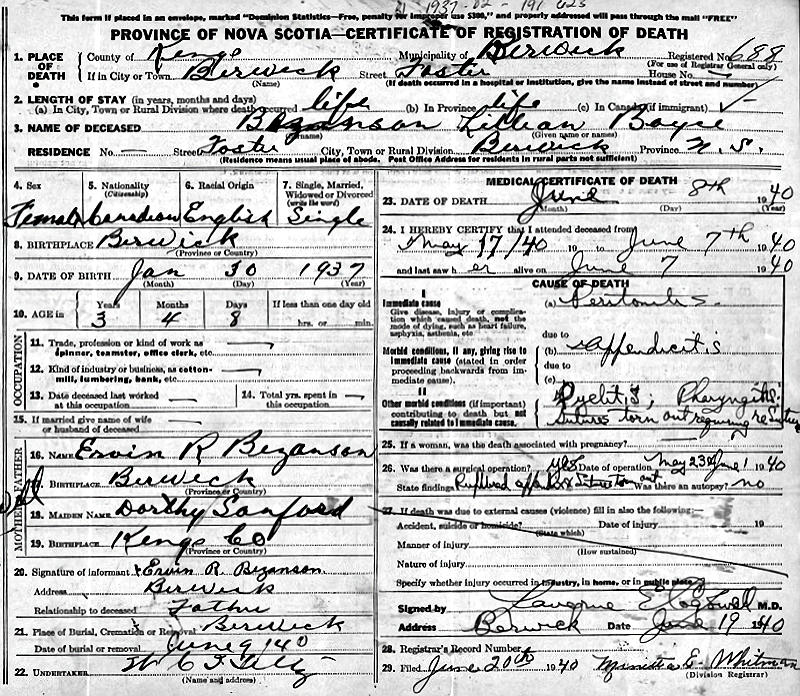 1937-02-191623
This form if placed in an envelope, marked "Dominion Statistics—Free, penalty for improper use $300," and properly addressed will pass through the mail "FREE"
PROVINCE OF NOVA SCOTIA—CERTIFICATE OF REGISTRATION OF DEATH
1. PLACE OF DEATH County of Kings Municipality of Berwick Registered No. 688
(For use of Registrar General only)
If in City or Town Berwick Street Foster House No.
(Name) (If death occurred in a hospital or institution, give the name instead of street and number)
2. LENGTH OF STAY (in years, months and days)
(a) In City, Town or Rural Division where death occurred life (b) In Province life (c) In Canada (if immigrant)
3. NAME OF DECEASED Bezanson Lillian Boyce
(Surname) (Given name or names)
RESIDENCE No. — Street Foster City, Town or Rural Division Berwick Province N.S.
(Residence means usual place of abode. Post Office Address for residents in rural parts not sufficient)
4. Sex Female
5. Nationality (Citizenship) Canadian
6. Racial Origin English
7. Single, Married, Widowed or Divorced (write the word) Single
8. BIRTHPLACE Berwick
(Province or Country)
9. DATE OF BIRTH Jan 30 1937
(Month) (Day) (Year)
10. AGE in Years 3 Months 4 Days 8 If less than one day old
hrs. or min.
OCCUPATION
11. Trade, profession or kind of work as spinner, teamster, office clerk, etc. —
12. Kind of industry or business, as cotton-mill, lumbering, bank, etc. —
13. Date deceased last worked at this occupation —
14. Total yrs. spent in this occupation —
15. If married give name of wife or husband of deceased —
FATHER
16. NAME Ervin R Bezanson
17. BIRTHPLACE Berwick
(Province or Country)
MOTHER
18. MAIDEN NAME Dorthy Sanford
19. BIRTHPLACE Kings Co
(Province or Country)
20. Signature of informant Ervin R. Bezanson
Address Berwick
Relationship to deceased Father
21. Place of Burial, Cremation or Removal Berwick
Date of burial or removal June 9 1940
22. UNDERTAKER
(Name and address)
MEDICAL CERTIFICATE OF DEATH
23. DATE OF DEATH June 8th 1940
(Month) (Day) (Year)
24. I HEREBY CERTIFY that I attended deceased from
May 17/40 19 to June 7th 1940
and last saw her alive on June 7 1940
CAUSE OF DEATH
I
Immediate cause
Give disease, injury or complication which caused death, not the mode of dying, such as heart failure, asphyxia, asthenia, etc.
(a) Peritonitis
due to
Morbid conditions, if any, giving rise to immediate cause (stated in order proceeding backwards from immediate cause).
(b) Appendicitis
due to
(c)
II
Other morbid conditions (if important) contributing to death but not causally related to immediate cause.
Pyelitis; Pharyngitis;
Sutures torn out requiring resuture
25. If a woman, was the death associated with pregnancy? —
26. Was there a surgical operation? yes Date of operation May 23rd June 1 1940
State findings Ruptured appendix Sutures torn out Was there an autopsy? no
27. If death was due to external causes (violence) fill in also the following:—
Accident, suicide or homicide? Date of injury 19
(State which)
Manner of injury
(How sustained)
Nature of injury
Specify whether injury occurred in industry, in home, or in public place
Signed by Cogswell M.D.
Address Berwick Date June 19 1940
28. Registrar's Record Number
29. Filed June 20th 1940 E. Whitman
(Division Registrar)